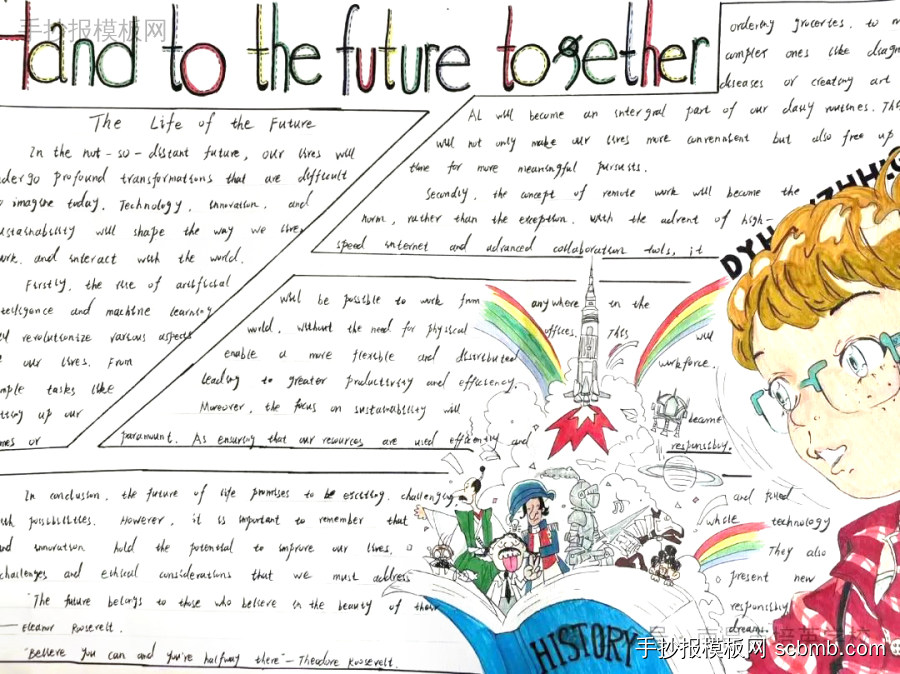 Hand to the future together
手抄报模板网
The Life of the Future
In the not-so-distant future, our lives will
undergo profound transformations that are difficult
to imagine today. Technology, innovation, and
sustainability will shape the way we live,
work, and interact with the world.
Firstly, the rise of artificial
intelligence and machine learning
will revolutionize various aspects
of our lives. From
simple tasks like
setting up our
homes or
ordering groceries, to m
complex ones like diagn
diseases or creating art
AI will become an intergral part of our daily routines. This
will not only make our lives more convennient but also free up
time for more meaningful pursuits.
Secondly, the concept of remote work will become the
norm, rather than the exception. With the advent of high-
speed internet and advanced collaboration tools, it
will be possible to work from anywhere in the
world, without the need for physical offices. This will
enable a more flexible and distributed workforce,
leading to greater productivity and efficiency.
Moreover, the focus on sustainability will become
paramount. As ensuring that our resources are used efficiently and responsibly.
In conclusion, the future of life promises to be exciting, challenging and filled
with possibilities. However, it is important to remember that while technology
and innovation hold the potential to improve our lives, They also
challenges and ethical considerations that we must address present new
responsibly
"The future belongs to those who believe in the beauty of their dreams.
— Eleanor Roosevelt.
"Believe you can and you're halfway there" — Theodore Roosevelt.
HISTORY
手抄报模板网 scbmb.com